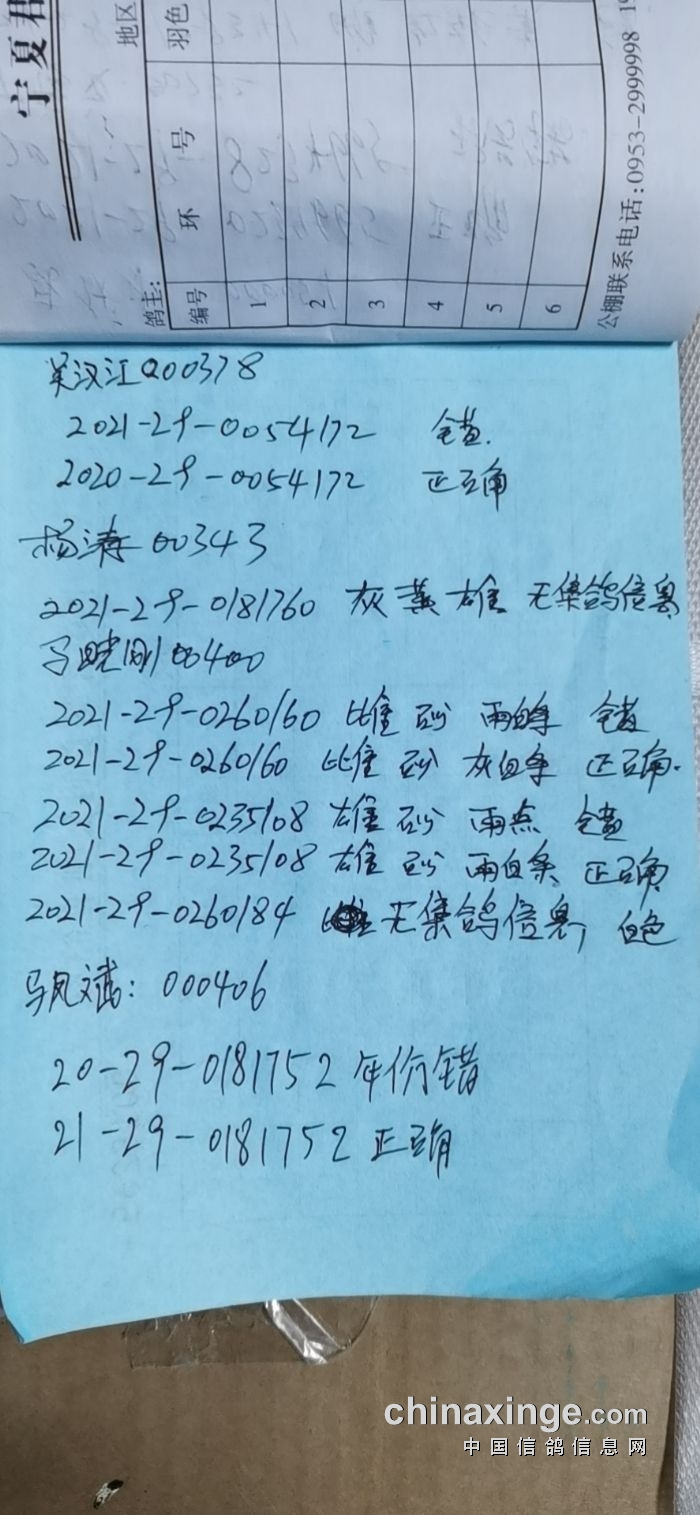 宁夏君
地区
鸽主:
编号 环 号 羽色
1
2
3
4
5
6
公棚联系电话:0953-2999998 1
吴汉江000378
2021-29-0054172 错.
2020-29-0054172 正确
杨涛 00343
2021-29-0181760 灰黄雄 无集鸽信息
马晓刚 00400
2021-29-0260160 雌 砂 雨白条 错
2021-29-0260160 雌 砂 灰白条 正确.
2021-29-0235108 雄 砂 雨点 错
2021-29-0235108 雄 砂 雨白条 正确
2021-29-0260184 无集鸽信息, 白色
马凤斌: 000406
20-29-0181752 年份错
21-29-0181752 正确
chinaxinge.com
中国信鸽信息网